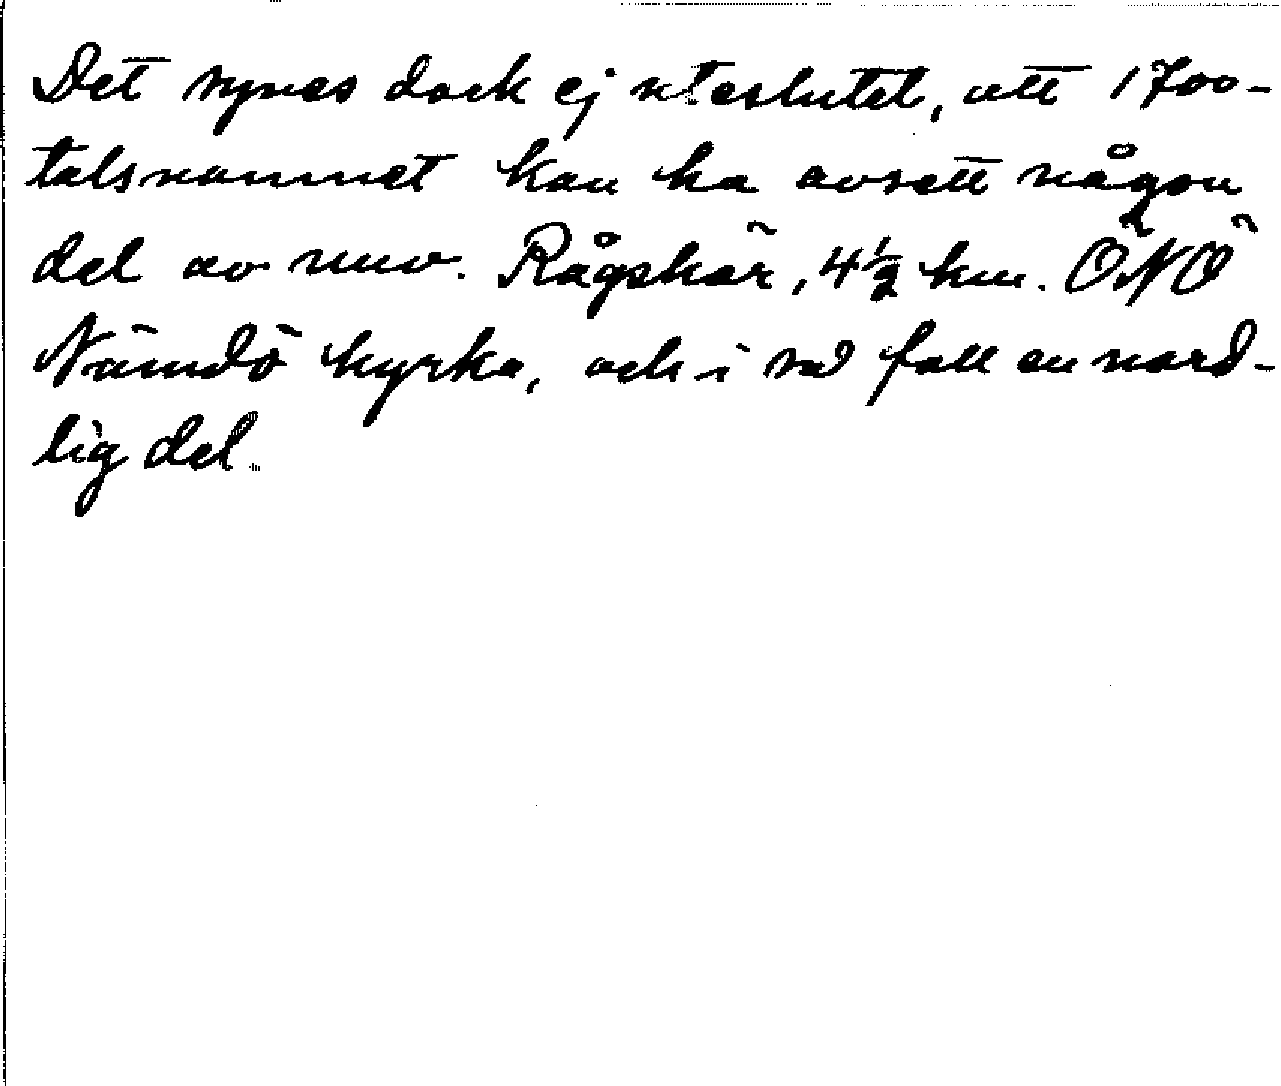 Det synes dock ej uteslutet, att 1700-
talsnamnet kan ha avsett någon
del av nuv. Rågskär, 4½ km. ÖNÖ
Nämdö kyrka, och i så fall en nord-
lig del.